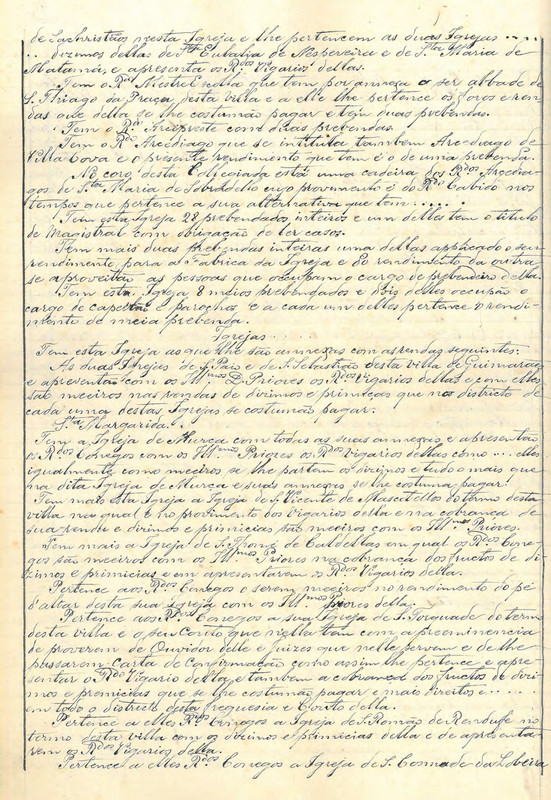 de Sachristães nesta Igreja e lhe pertencem as duas Igrejas .....
.. dizimos dellas de Sta Eulalia de Nespereira e de Sta Maria de
Matamá, e apresenta os Rdos Vigarios dellas.
Tem o Rdo Mestre Scolla que tem por annexa o ser abbade de
S. Thiago da Praça desta villa e a elle lhe pertence os foros e ren
das que della se lhe costumão pagar e tem duas prebendas.
Tem o Rdo Arcipreste com duas prebendas.
Tem o Rdo Arcediago que se intitula tambem Arcediago de
Villa Cova e o presente rendimento que tem é o de uma prebenda.
No coro desta Collegiada está uma cadeira dos Rdos Arcedia
gos de Sta Maria de Sobradello cujo provimento é do Rdo Cabido nos
tempos que pertence a sua alternativa que tem ......
Tem esta Igreja 28 prebendados inteiros e um delles tem o titulo
de Magistral com obrigação de ler casos.
Tem mais duas prebendas inteiras uma dellas applicado o seu
rendimento para a Fabrica da Igreja e do rendimento da outra
se aproveitão as pessoas que occupam o cargo de prebendeiro della.
Tem esta Igreja 8 meios prebendados e dois delles occupão o
cargo de capellão e parochos e a cada um delles pertence o rendi-
mento de meia prebenda.
Igrejas
Tem esta Igreja as que lhe são annexas com as rendas seguintes:
As duas Igrejas de S. Paio e de S. Sebastião desta villa de Guimarães
e apresentão com os Illmos D. Priores os Rdos Vigarios dellas e com elles
são meeiros nas rendas de dizimos e primicias que no districto de
cada uma destas Igrejas se costumão pagar.
Sta Margarida
Tem a Igreja de Murça com todas as suas annexas e apresentão
os Rdos Conegos com os Illmos Priores os Rdos Vigarios dellas como ... elles
igualmente como meeiros se lhe partem os dizimos e tudo o mais que
na dita Igreja de Murça e suas annexas se lhe costuma pagar.
Tem mais esta Igreja a Igreja de S. Vicente de Mascotellos do termo desta
villa na qual e no provimento dos Vigarios della e na cobrança de
sua renda e dizimos e primicias são meeiros com os Illmos Priores.
Tem mais a Igreja de S. Thomé de Caldellas em qual os Rdos Cone-
gos são meeiros com os Illmos Priores na cobrança dos fructos de di-
zimos e primicias e em apresentarem os Rdos Vigarios della.
Pertence aos Rdos Conegos o serem meeiros no rendimento do pé
d'altar desta sua Igreja com os Illmos Priores della.
Pertence aos Rdos Conegos a sua Igreja de S. Torquade do termo
desta villa e o seu Couto que nella tem com a preeminencia
de proverem de Ouvidor delle e juizes que nelle servem e de lhe
passarem Carta de Confirmação como assim lhe pertence e apre-
sentar o Rdo Vigario della, e tambem a cobrança dos fructos de dizi-
mos e primicias que se lhe costumão pagar e mais direitos e .....
em todo o districto desta freguesia e Couto della.
Pertence a elles Rdos Conegos a Igreja de S. Romão de Rendufe no
termo desta villa com os dizimos e primicias della e de apresenta-
rem os Rdos Vigarios della.
Pertence a elles Rdos Conegos a Igreja de S. Cosmade da Lobeira